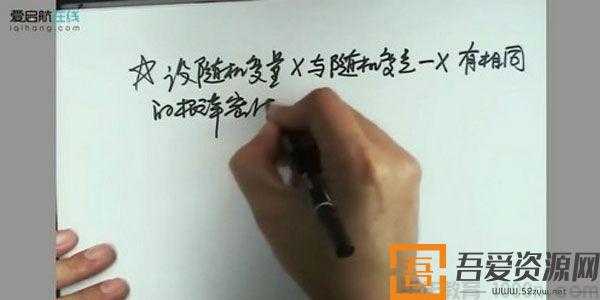 爱启航在线
iqihang.com
☆设随机变量X与随机变量-X有相同
的概率密
吾爱资源网
www.52zyw.net